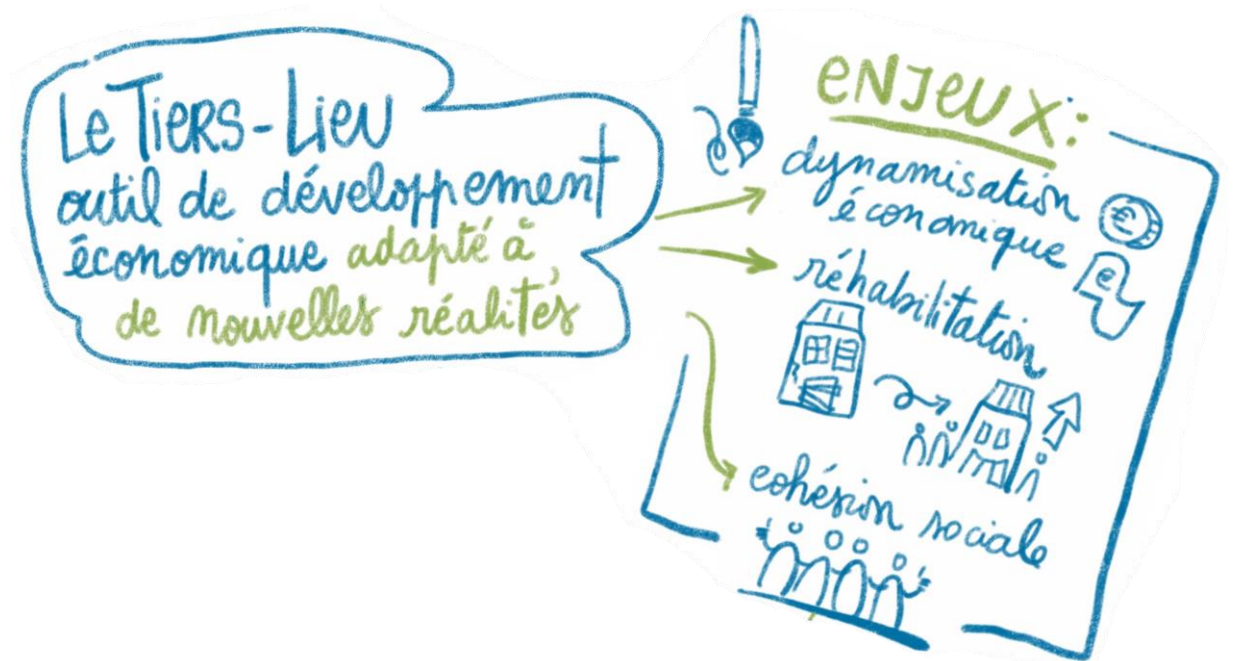 Le Tiers-Lieu
outil de développement
économique adapté à
de nouvelles réalités
ENJEUX:
dynamisation
économique
€
e
réhabilitation
cohésion sociale